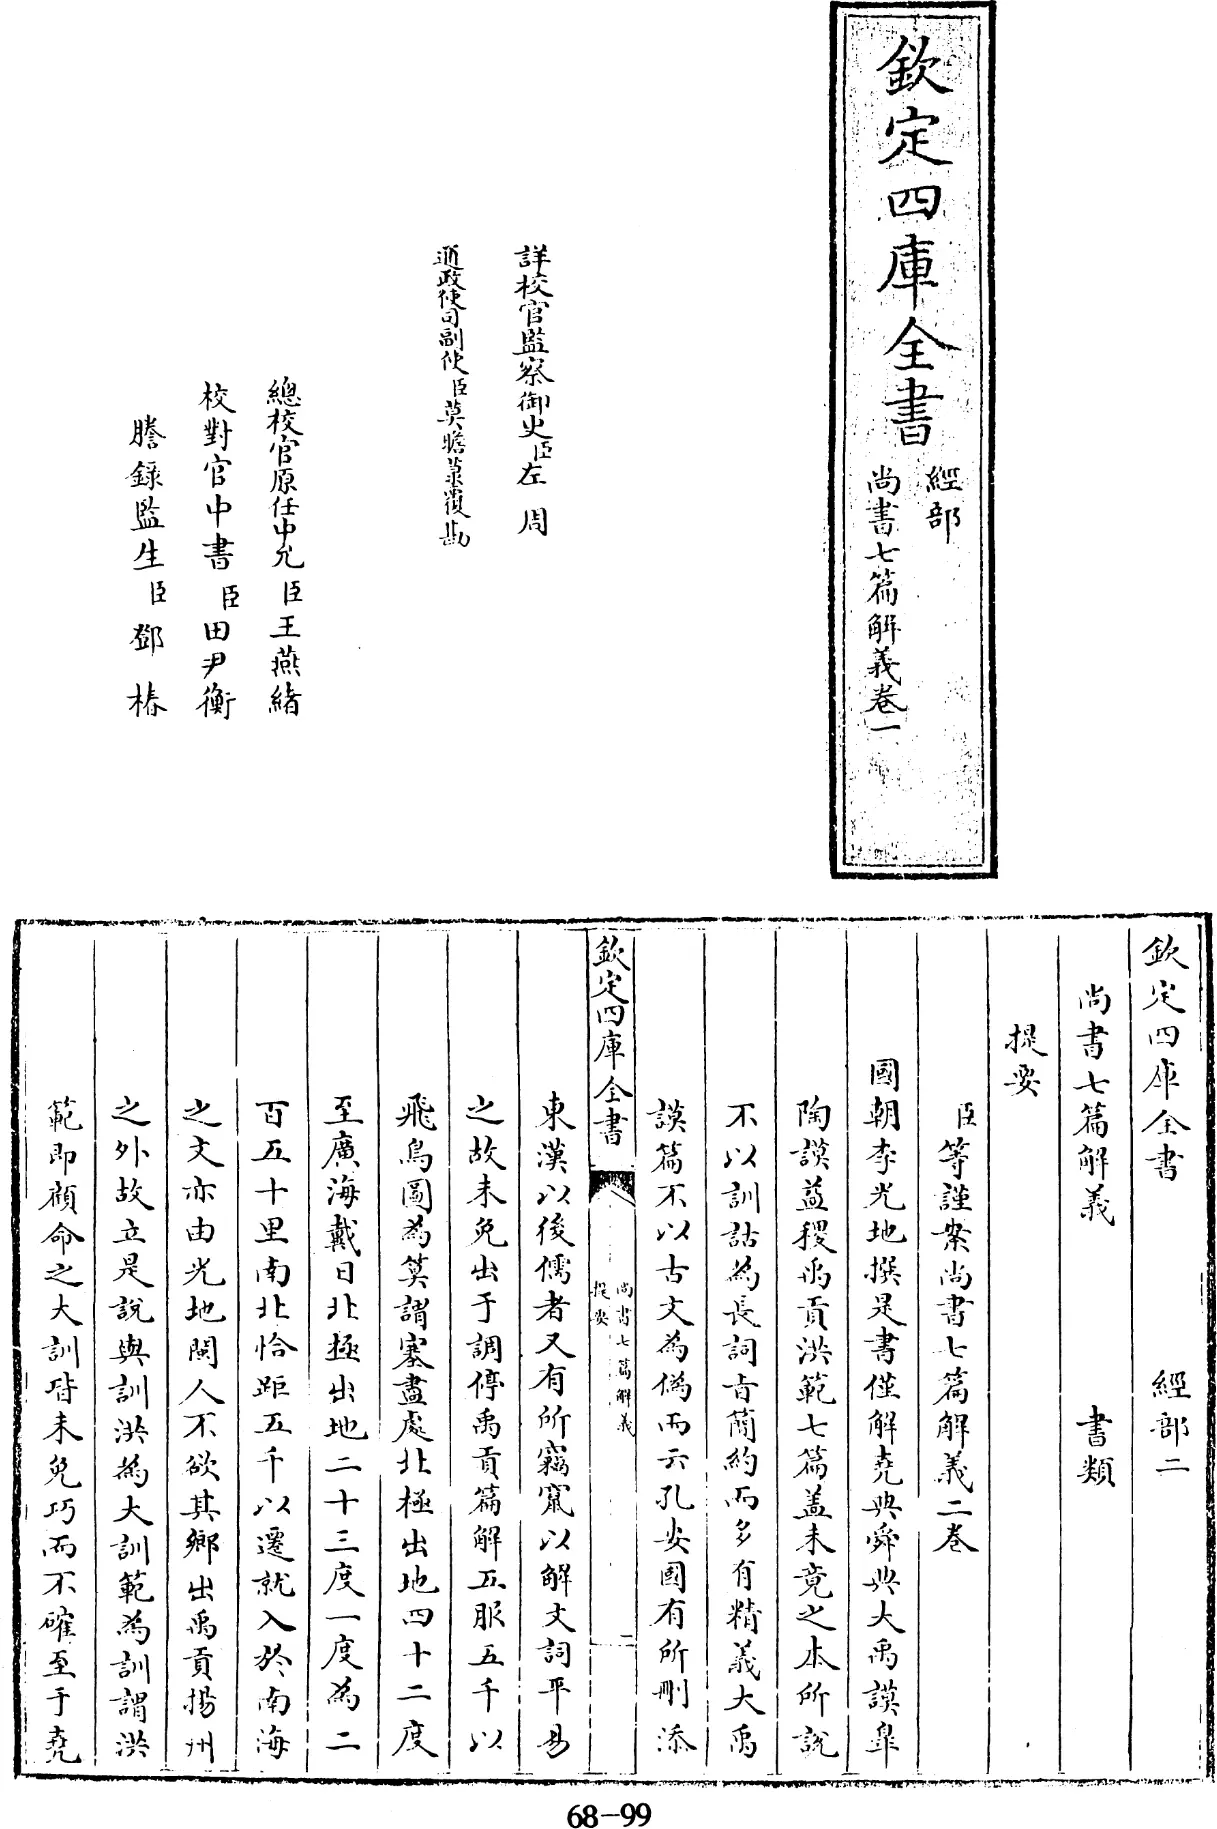 欽定四庫全書
經部
尚書七篇解義卷一
詳校官監察御史臣左周
通政使司副使臣莫瞻菉覆勘
總校官原任中允臣王燕緒
校對官中書臣田尹衡
謄錄監生臣鄧椿
欽定四庫全書 經部二
尚書七篇解義 書類
提要
臣等謹案尚書七篇解義二卷
國朝李光地撰是書僅解堯典舜典大禹謨臯
陶謨益稷禹貢洪範七篇蓋未竟之本所說
不以訓詁為長詞旨簡約而多有精義大禹
謨篇不以古文為偽而云孔安國有所刪添
欽定四庫全書
尚書七篇解義
提要
二
東漢以後儒者又有所竊竄以解文詞平易
之故未免出于調停禹貢篇解五服五千以
飛鳥圖為算謂塞盡處北極出地四十二度
至廣海戴日北極出地二十三度一度為二
百五十里南北恰距五千以遷就入於南海
之文亦由光地閩人不欲其鄉出禹貢揚州
之外故立是說與訓洪為大訓範為訓謂洪
範即顧命之大訓皆未免巧而不確至于堯
68-99